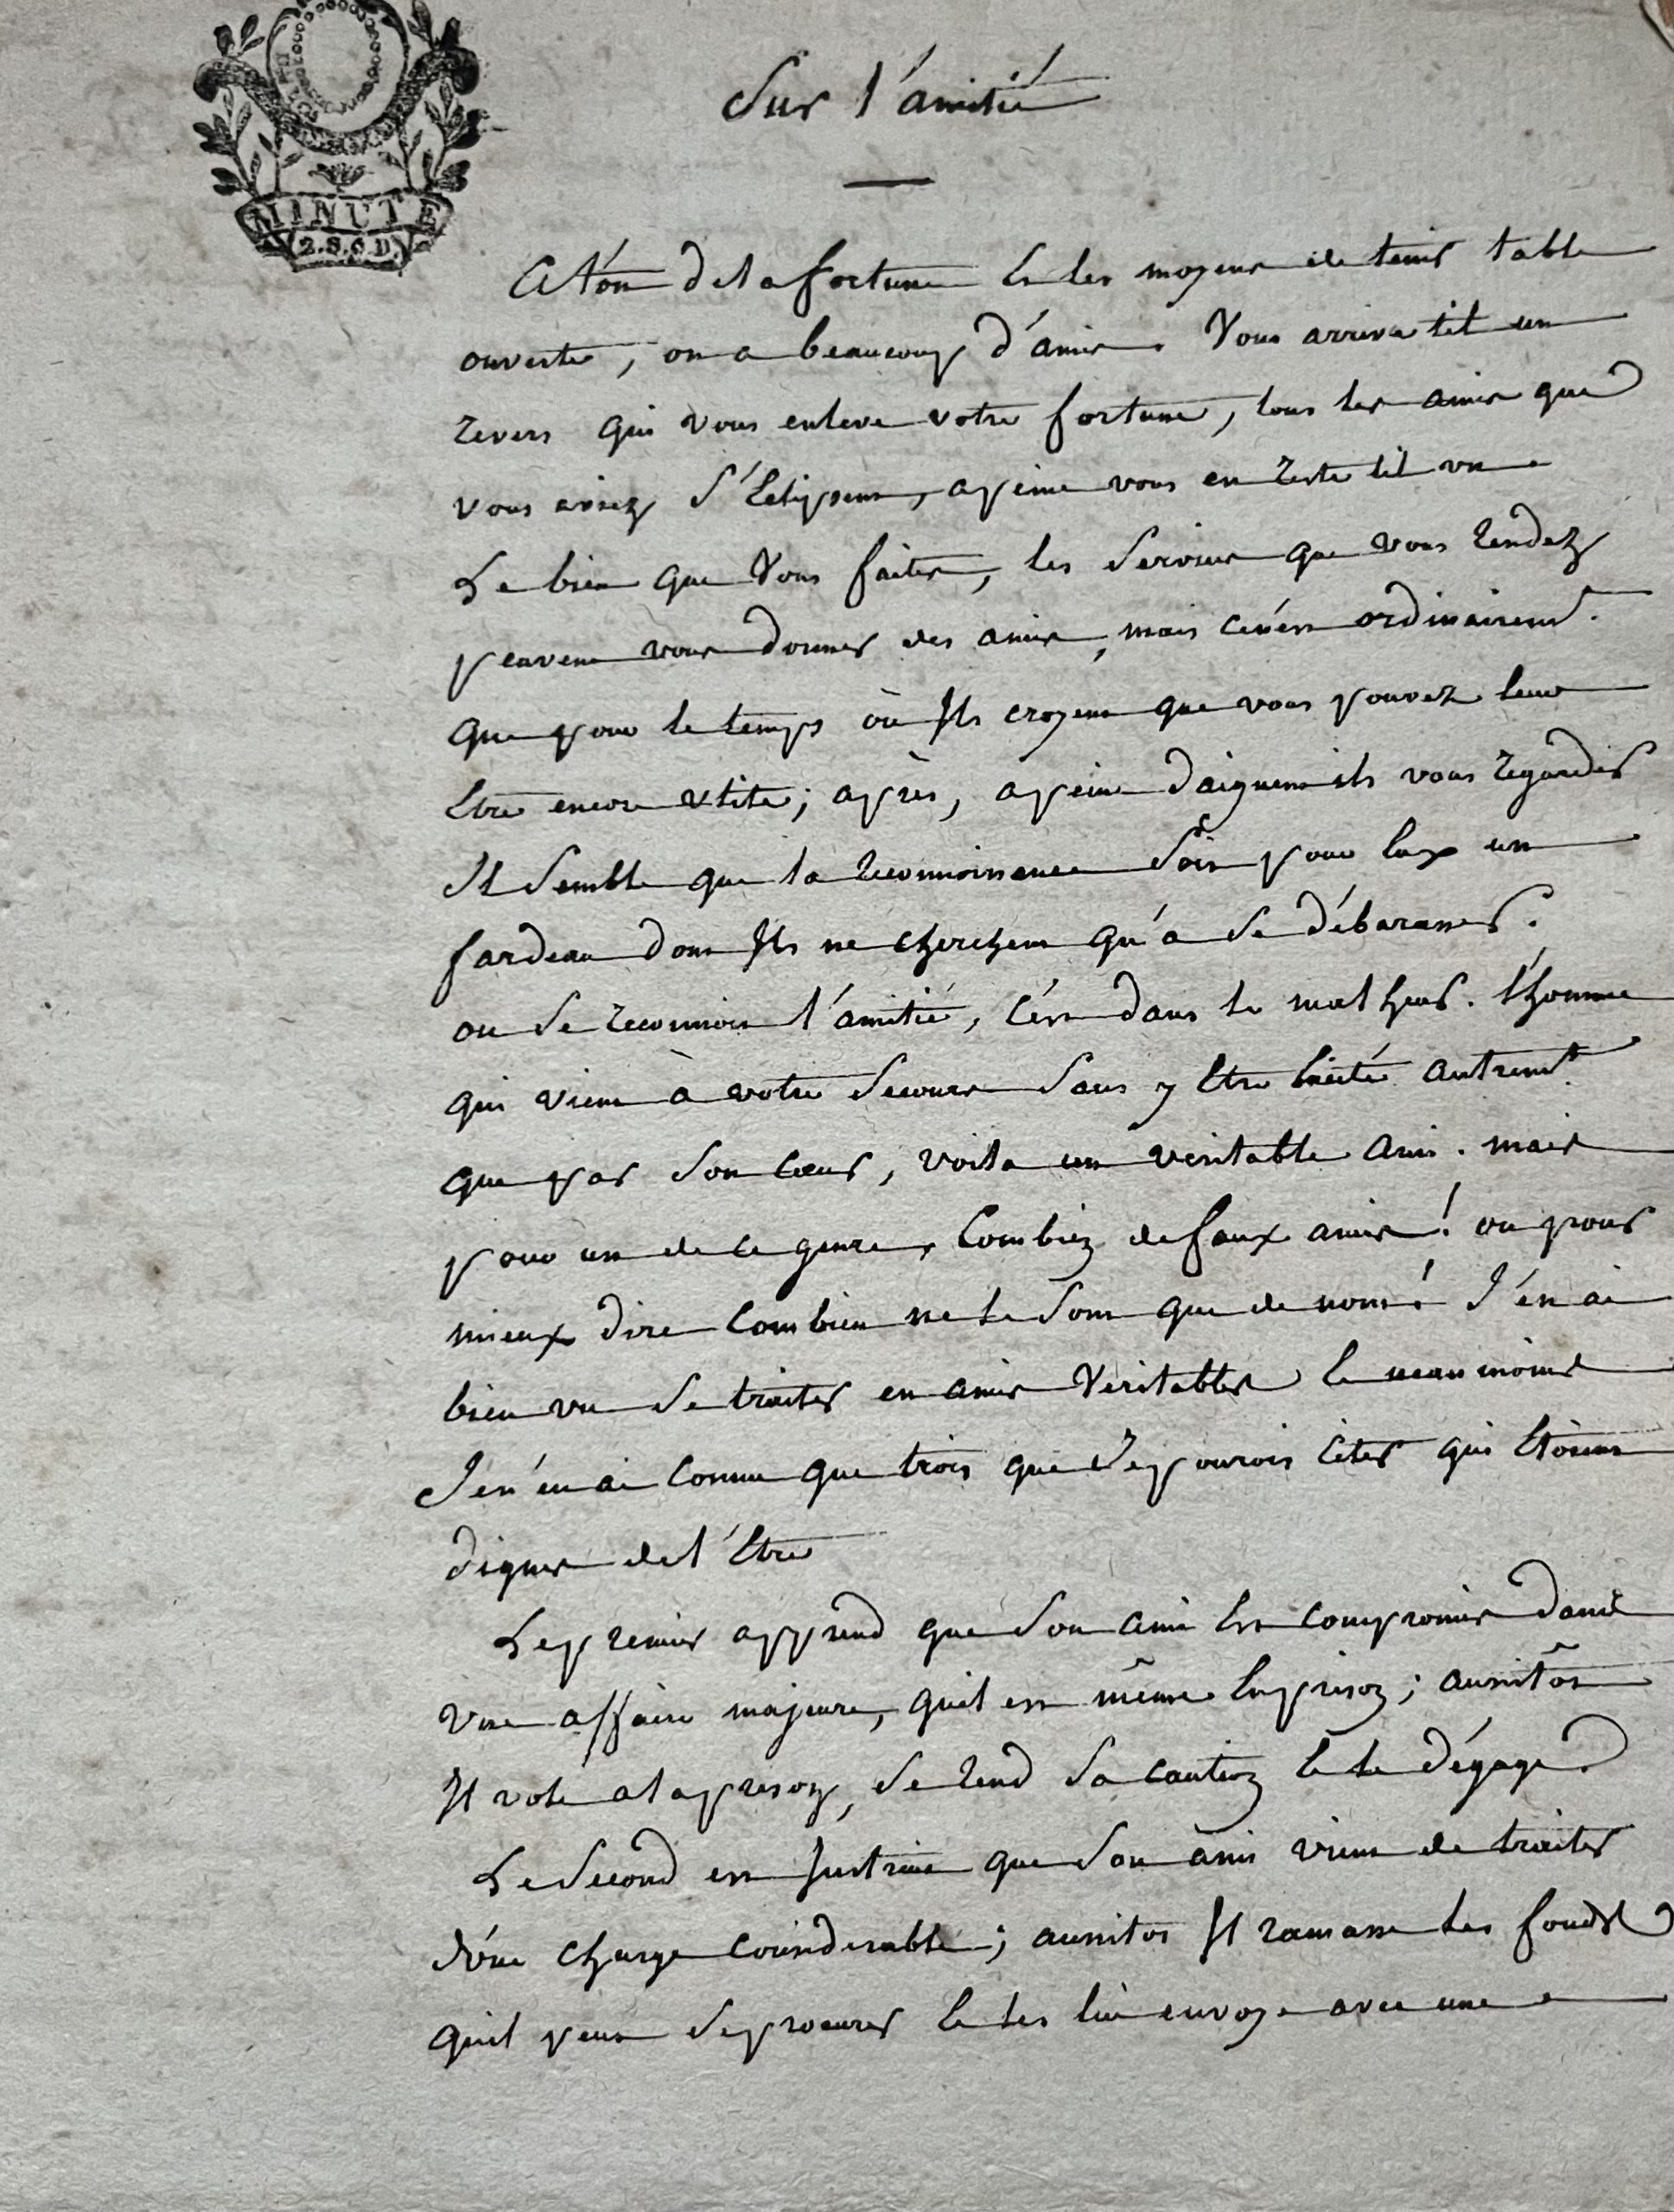 MINUTE
2.S.C.D.
Sur l'amitié
At'on de la fortune et les moyens de tenir table
ouverte, on a beaucoup d'amis. Vous arrive til un
revers qui vous enleve votre fortune, tous les amis que
vous aviez s'éclipsent, apeine vous en reste til un
Le bien que Vous faites, les services que vous rendez
peuvent vous donner des amis, mais ce n'est ordinairemt.
que pour le temps où Ils croyent que vous pouvez leur
Etre encore utile; après, apeine daignent ils vous regarder
Il semble que la reconnoissance soit pour Eux un
fardeau dont Ils ne cherchent qu'a se débarasser.
ou se reconnoit l'amitié, c'est dans le malheur. l'homme
qui vient à votre secours sans y Etre Excité autremt.
que par son coeur, voila un veritable ami. mais
pour un de ce genre, Combien de faux amis! ou pour
mieux dire Combien ne le sont que de nom! J'en ai
bien vu se traiter en amis Veritables Et neanmoins
Je n'en ai connu que trois que Je pourois citer qui Etoient
dignes de l'Etre
Le premier apprend que son ami Est compromis dans
une affaire majeure, quil est même En prison; aussitôt
Il vole a la prison, se rend sa caution Et le dégage.
Le second est Instruit que son ami vient de traiter
d'une charge considerable; aussitot Il ramasse les fonds
quil peut se procurer Et les lui envoye avec une